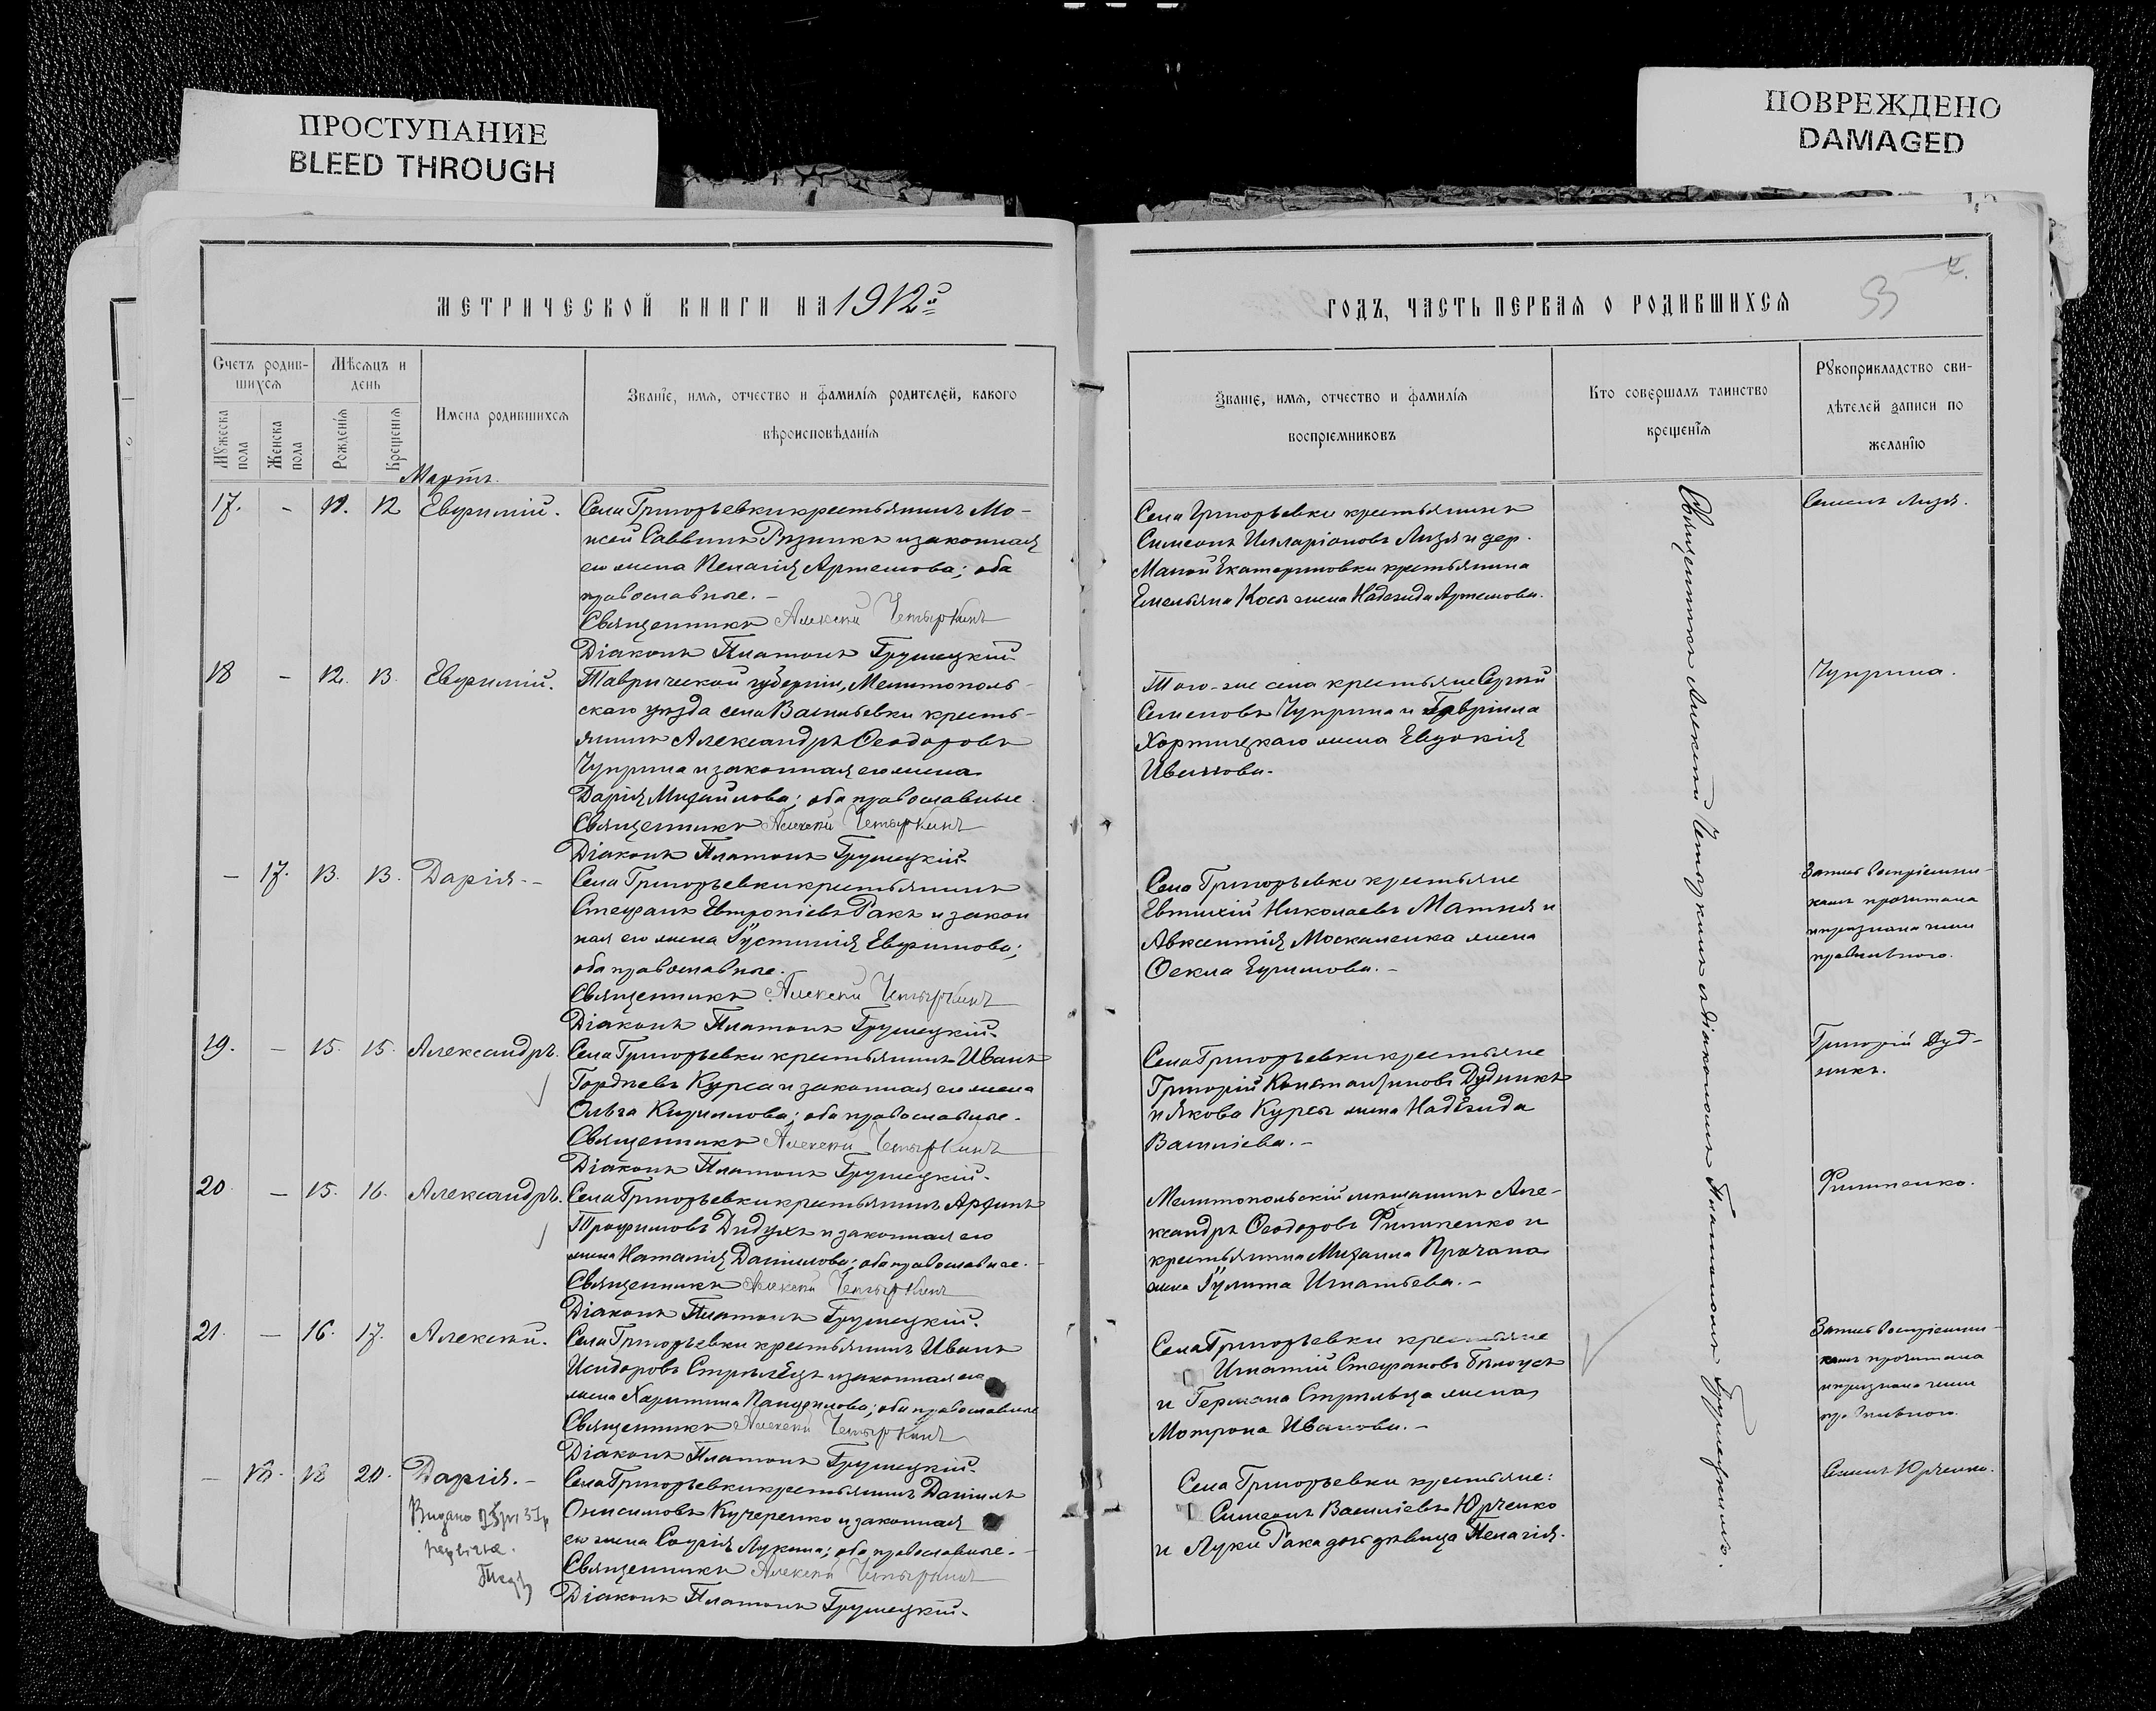 ПРОСТУПАНИЕ
BLEED THROUGH
ПОВРЕЖДЕНО
DAMAGED
МЕТРИЧЕСКОЙ КНИГИ НА 1912й
Счетъ родив-
шихся
Мѣсяцъ и
день
Мужеска
пола
Женска
пола
Рожденія
Крещенія
Имена родившихся
Званіе, имя, отчество и фамилія родителей, какого
вѣроисповѣданія
Мартъ.
17. - 12 Евѳимій.
Села Григорьевки крестьянинъ Мо-
исей Саввинъ Рѣзникъ и законная
его жена Пелагія Артемова; оба
православные. -
Священникъ Алексѣй Четыркинъ
Діаконъ Платонъ Грушецкій
18 - 12. 13. Евѳимій.
Таврической губерніи, Мелитополь-
скаго уѣзда села Васильевки кресть-
янинъ Александръ Ѳеодоровъ
Чуприна и законная его жена
Дарія Михайлова; оба православные
Священникъ Алексѣй Четыркинъ
Діаконъ Платонъ Грушецкій.
- 17. 13. 13. Дарія. -
Села Григорьевки крестьянинъ
Стефанъ Евтропіевъ Ракъ и закон
ная его жена Іустинія Евѳимова;
оба православные.
Священникъ Алексѣй Четыркинъ
Діаконъ Платонъ Грушецкій.
19. - 15. 15. Александръ.
Села Григорьевки крестьянинъ Иванъ
Гордѣевъ Курса и законная его жена
Ольга Кириллова; оба православные.
Священникъ Алексѣй Четыркинъ
Діаконъ Платонъ Грушецкій.
20 - 15. 16. Александръ.
Села Григорьевки крестьянинъ
Трофимовъ Дидухъ и законная его
жена Наталія Даніилова; оба православные.
Священникъ Алексѣй Четыркинъ
Діаконъ Платонъ Грушецкій.
21. - 16. 17. Алексѣй.
Села Григорьевки крестьянинъ Иванъ
Исидоровъ Стрѣлецъ и законная его
жена Харитина Панфилова; оба православные
Священникъ Алексѣй Четыркинъ
Діаконъ Платонъ Грушецкій.
- 18. 18 20. Дарія. -
Села Григорьевки крестьянинъ Даніилъ
Онисимовъ Кучеренко и законная
его жена Софія Лукина; оба православные.
Священникъ Алексѣй Четыркинъ
Діаконъ Платонъ Грушецкій.
Видано
ГОДЪ, ЧАСТЬ ПЕРВАЯ О РОДИВШИХСЯ
Званіе, имя, отчество и фамилія
воспріемниковъ
Кто совершалъ таинство
крещенія
Рукоприкладство сви-
дѣтелей записи по
желанію
Села Григорьевки крестьянинъ
Симеонъ Илларіоновъ Лизя и дер.
Малой Екатериновки крестьянина
Емельяна Косы жена Надежда Артемова.
Того-же села крестьяне Сергій
Семеновъ Чуприна и Гавріила
Хортицкаго жена Евдокія
Иванова.
Села Григорьевки крестьяне
Евтихій Николаевъ Матня и
Авксентія Москаленка жена
Ѳекла Ефимова. -
Села Григорьевки крестьяне
Григорій Константиновъ Дудникъ
и Якова Курсы жена Надежда
Василіева. -
Мелитопольскій мѣщанинъ Але-
ксандръ Ѳеодоровъ Филипенко и
крестьянина Михаила Прачана
жена Іулита Игнатьева. -
Села Григорьевки крестьяне
Игнатій Стефановъ Бѣлоусъ
и Германа Стрѣльца жена
Мотрона Иванова. -
Села Григорьевки крестьяне:
Симеонъ Василіевъ Юрченко
и Луки Рака дочь дѣвица Пелагія.
Священникъ Алексѣй Четыркинъ съ діакономъ Платономъ Грушецкимъ.
Семенъ Лизя.
Чуприна.
Запись воспріемни-
камъ прочитана
и признана ими
правильною.
Григорій Дуд-
никъ.
Филипенко.
Запись воспріемни-
камъ прочитана
и признана ими
правильною.
Семенъ Юрченко.